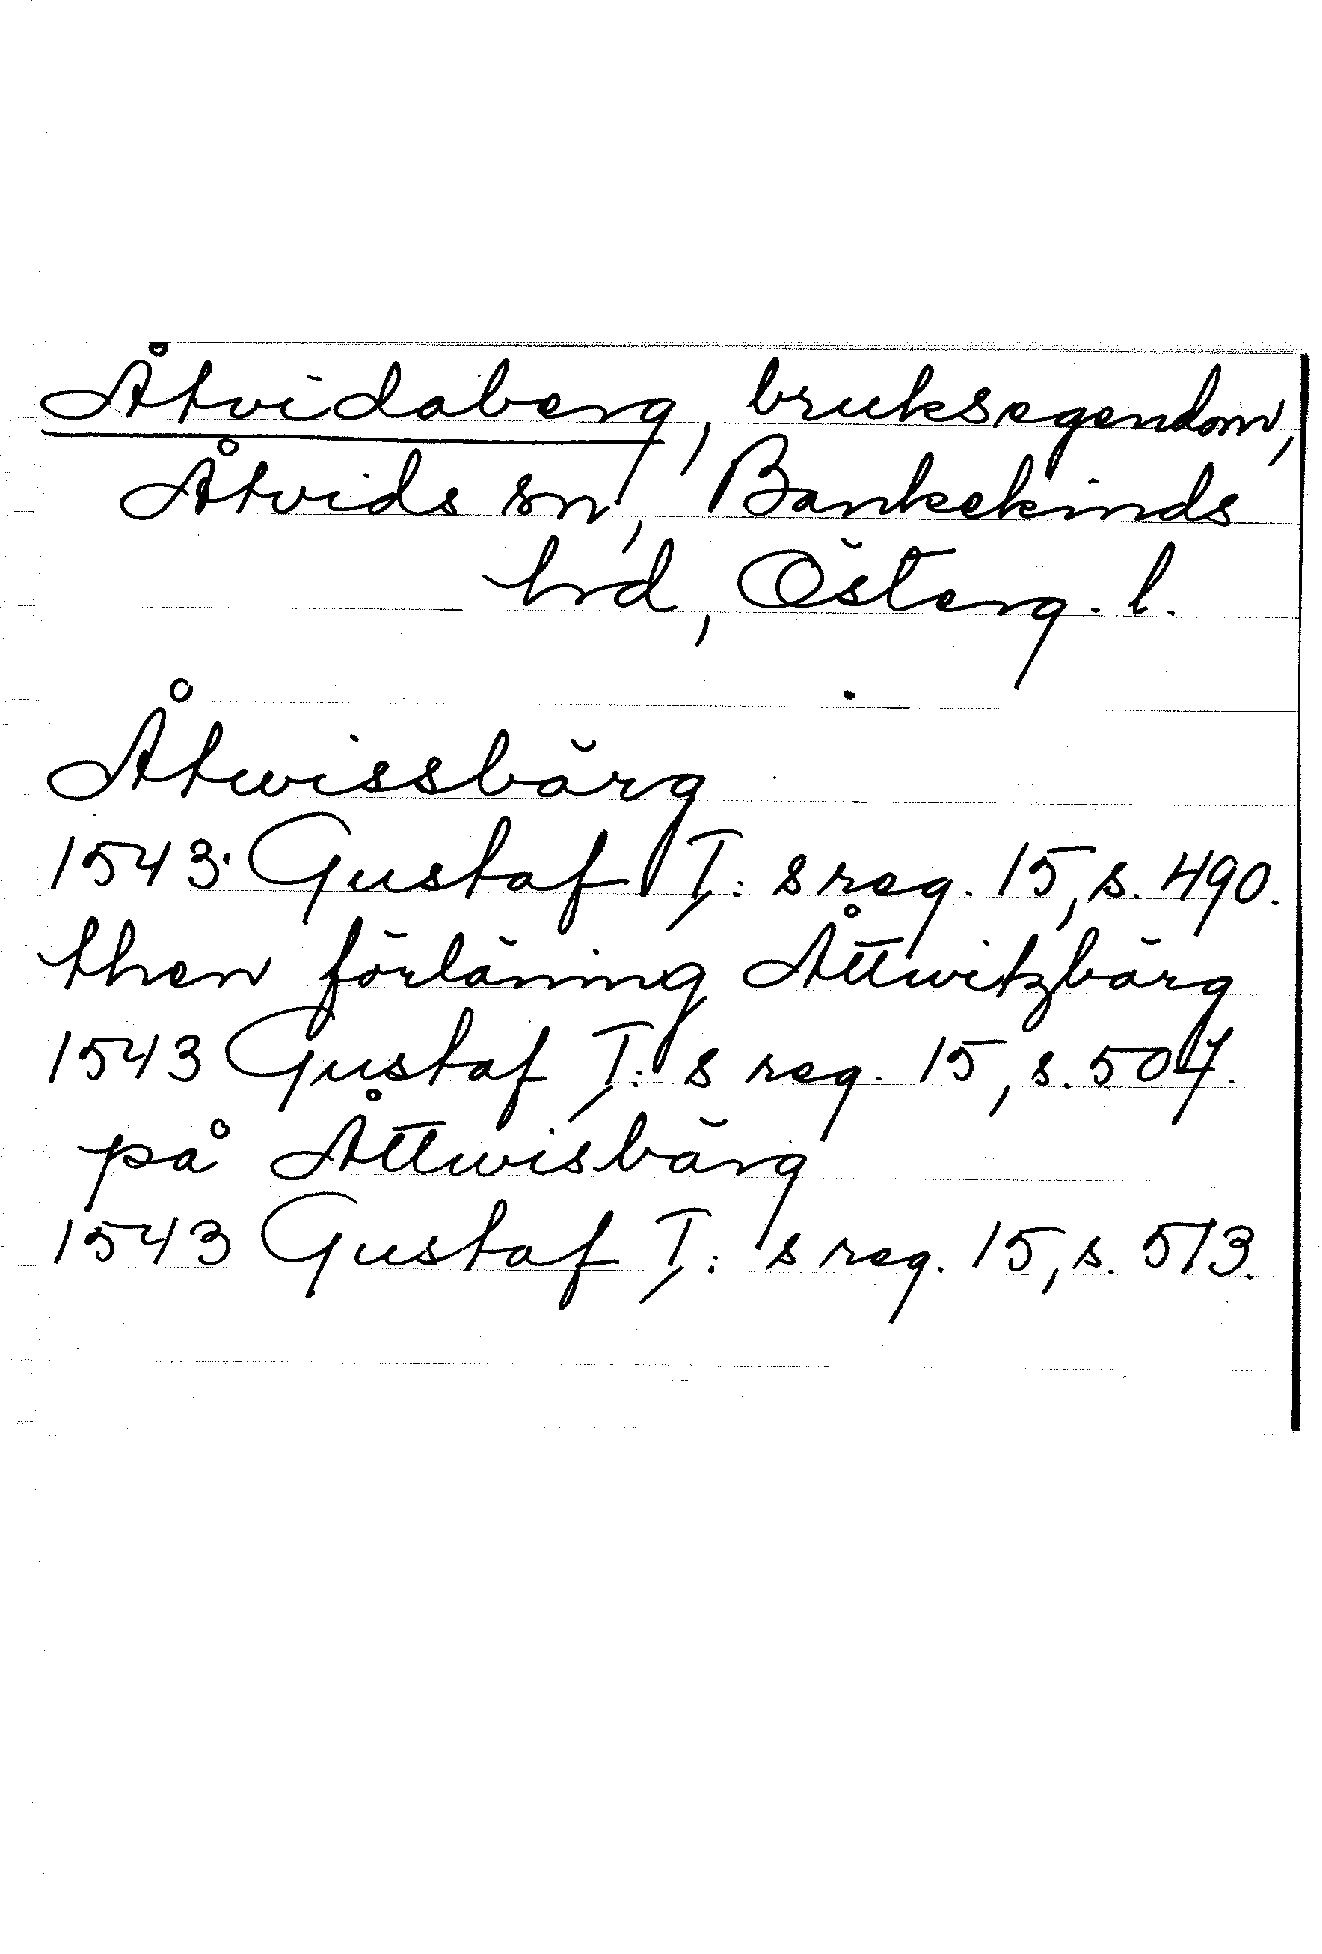 Åtvidaberg, bruksegendom,
Åtvids sn, Bankekinds
hrd, Österg. l.
Åtwissbärg
1543 Gustaf I: s reg. 15, s. 490.
then förläning Åttwitzbärg
1543 Gustaf I: s reg. 15, s. 507.
på Åttwisbärg
1543 Gustaf I: s reg. 15, s. 513.